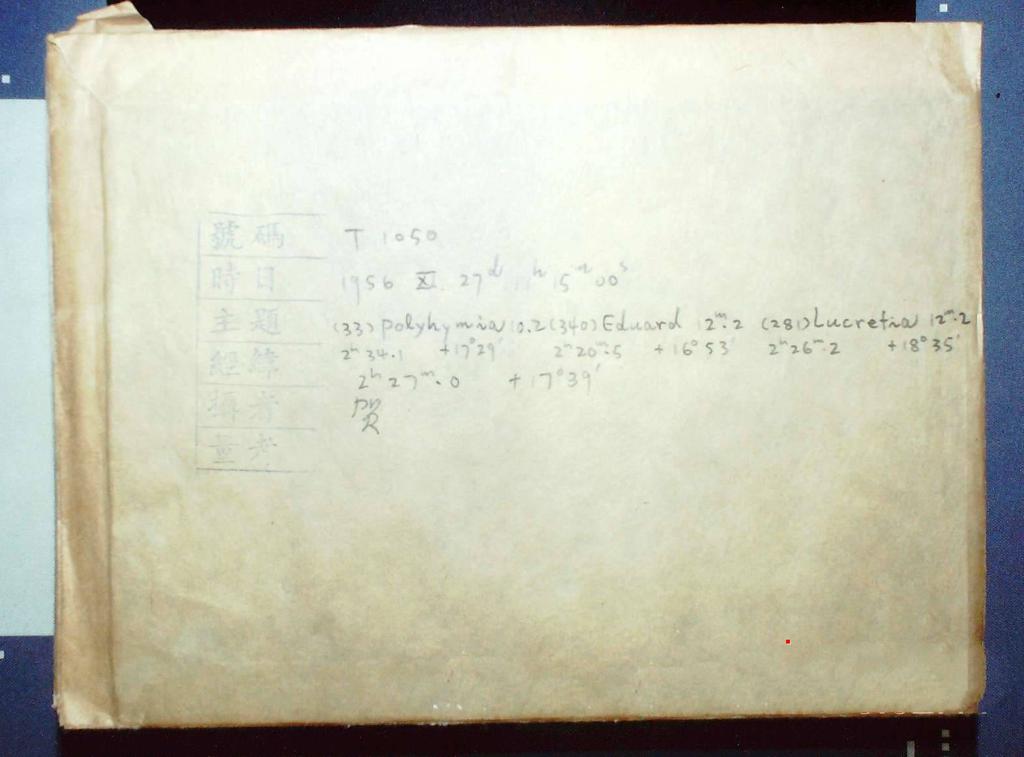 號碼 T 1050
時日 1956 XI. 27d 11h 15m 00s
主題 (33) Polyhymnia 10.2 (340) Eduard 12m.2 (281) Lucretia 12m.2
2h 34.1 +17°29' 2h 20m.5 +16°53' 2h 26m.2 +18°35'
經緯 2h 27m.0 +17°39'
攝者
量者